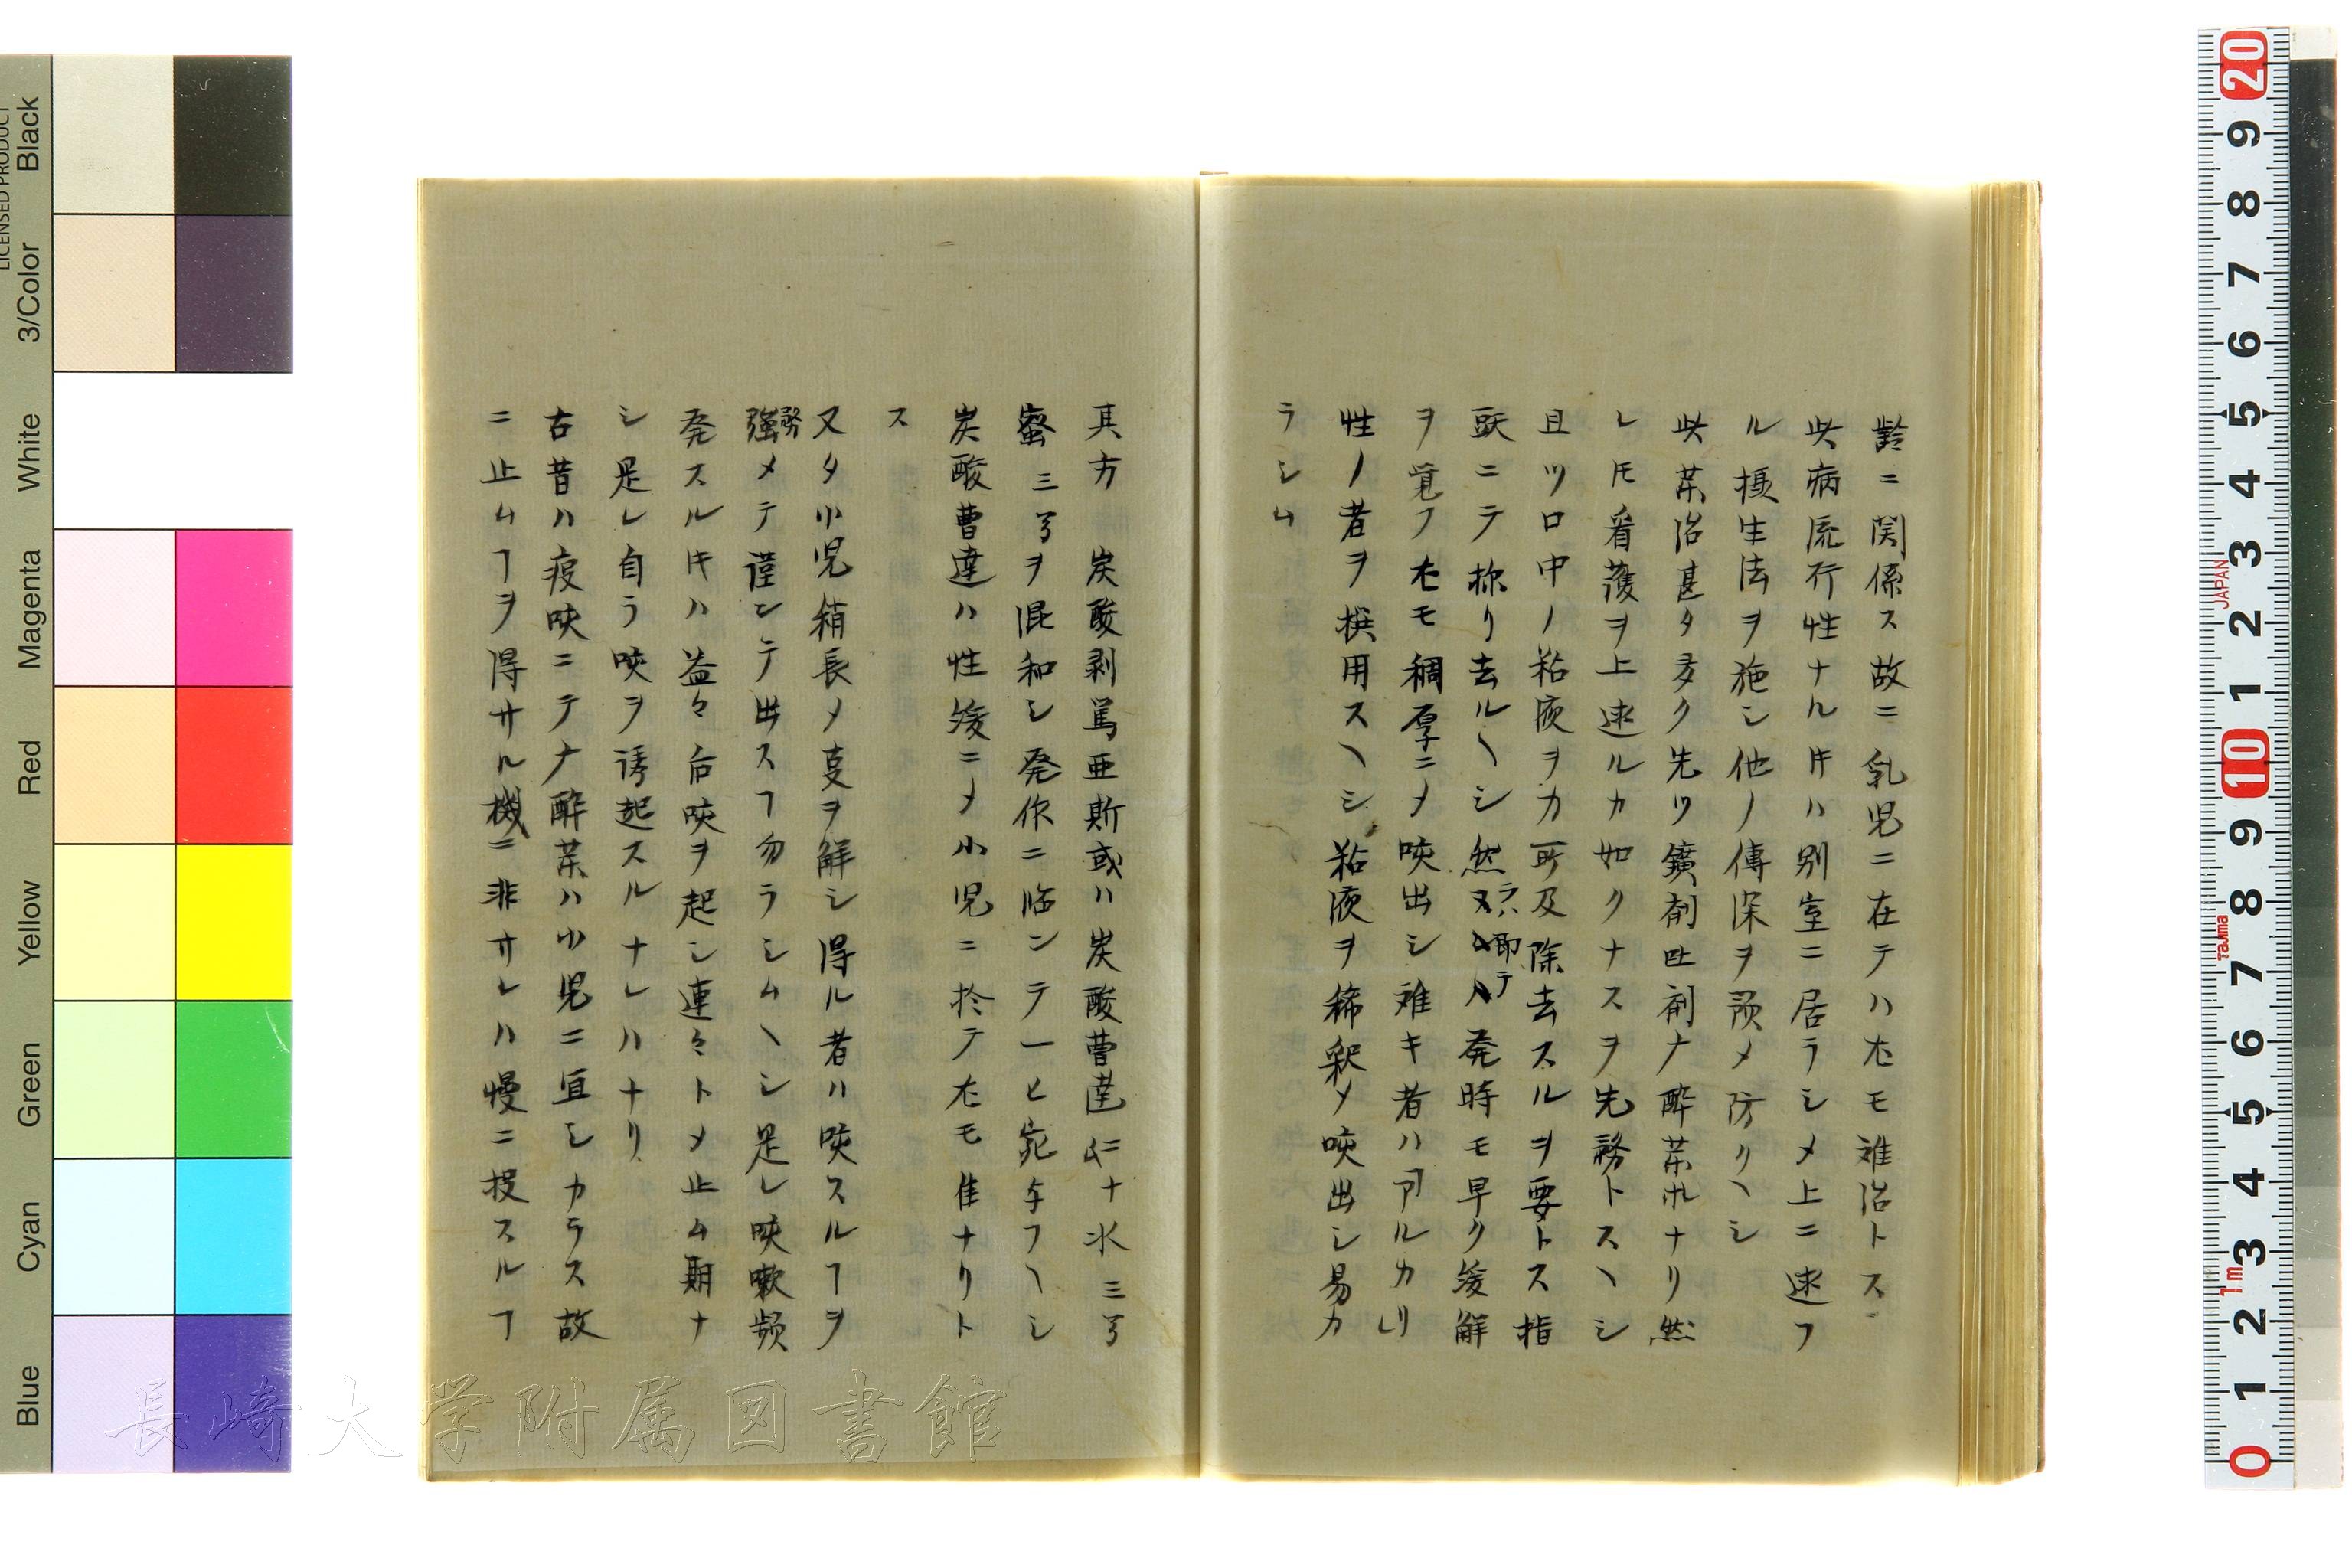 齢ニ関係ス故ニ乳児ニ在テハ尤モ難治トス
此病流行性ナルキハ別室ニ居ラシメ上ニ述フ
ル摂生法ヲ施シ他ノ傳染ヲ預メ防クヘシ
此薬治甚タ多ク先ツ鑛剤吐剤ナ酔薬ホナリ然
レ𪜈看護ヲ上述ルカ如クナスヲ先務トスヘシ
且ツ口中ノ粘液ヲカ可及除去スルヲ要トス指
頭ニテ拯リ去ルヘシ然ラハ即テ発時モ早ク緩解
ヲ覚フ尤モ稠厚ニメ咳出シ難キ者ハアルカリ
性ノ者ヲ撰用スヘシ粘液ヲ稀釈メ咳出シ易カ
ラシム
其方 炭酸剥篤亜斯或ハ炭酸曹達 水三
蜜三 ヲ混和シ発作ニ臨ンテ一ヒ宛与フヘシ
炭酸曹達ハ性緩ニメ小児ニ於テ尤モ佳ナリト
ス
又タ小児稍長メ ヲ解シ得ル者ハ咳スルヿヲ
強務メテ謹ンテ出スヿ勿ラシムヘシ是レ咳嗽頻
発スルキハ益々后咳ヲ起シ連々トメ止ム期ナ
シ是レ自ラ咳ヲ誘起スルナレハナリ
古昔ハ疫咳ニテナ酔薬ハ小児ニ宜シカラス故
ニ止ムヿヲ得サル機ニ非サレハ慢ニ投スルヿ
Black
3/Color
White
Magenta
Red
Yellow
Green
Cyan
Blue
LICENSED PRODUCT
長崎大学附属図書館
20
9
8
7
6
5
4
3
2
1
10
9
8
7
6
5
4
3
2
1
0
JAPAN
Tajima
1m